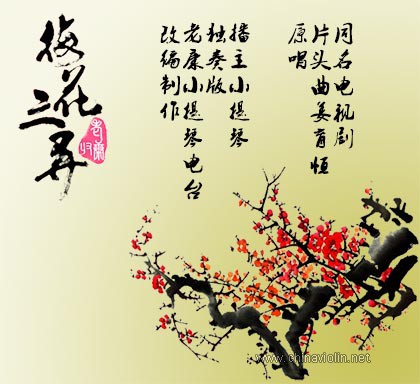 梅花三弄
同名电视剧
片头曲姜育恒
原唱
播主小提琴
独奏版
老康小提琴电台
改编制作
www.chinaviolin.net